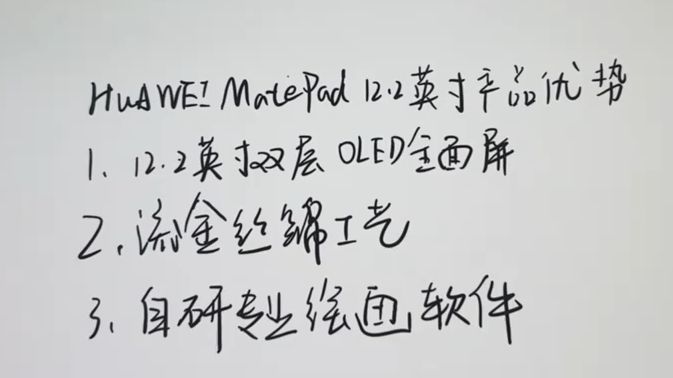 HUAWEI MatePad 12.2英寸产品优势
1、12.2英寸双层OLED全面屏
2、流金丝锦工艺
3、自研专业绘画软件